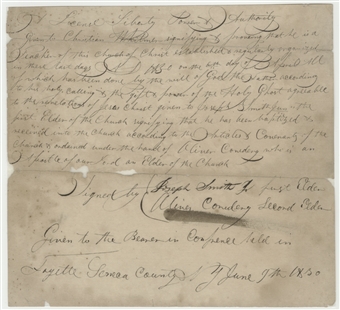 A License Liberty Power & Authority
Given to Christian Whitmer signifying & proveing that he is a
Teacher of this Church of Christ established & regularly organized
in these last days AD 1830 on the day of April All
of which has been done by the will of God the Father according
to his holy calling & the gift & power of the Holy Ghost agreeable
to the revelations of Jesus Christ given to Joseph Smith the
first Elder of the Church signifying that he has been baptized &
received into the Church according to the Articles & Covenants of the
Church & ordained under the hand of Oliver Cowdery who is an
Apostle of our Lord an Elder of the Church
Signed by Joseph Smith Jr first Elder
Oliver Cowdery Second Elder
Given to the Bearer in Conference held in
Fayette Seneca County N Y June 9th 1830